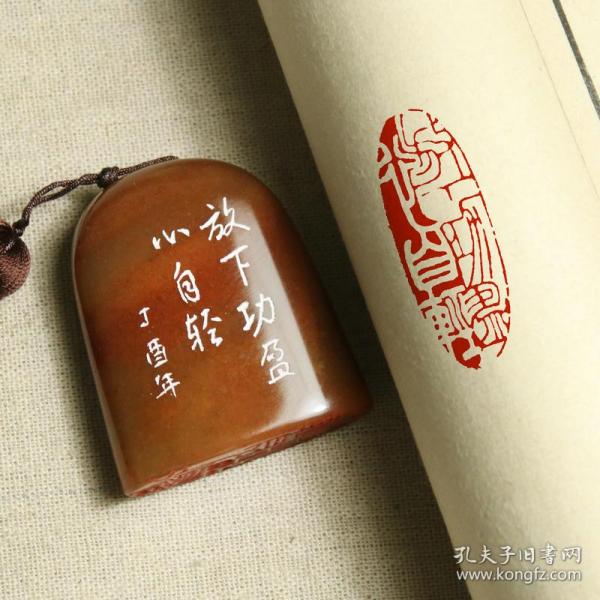 放下功盈
心自轻
丁酉年
放下功盈
心自轻
孔夫子旧书网
www.kongfz.com